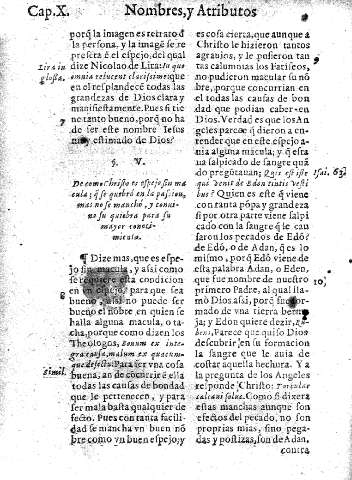 Cap.X. Nombres, y Atributos
porq̃ la imagen es retrato đ
la persona, y la imagẽ se re
presenta ẽ el espejo, del qual
dize Nicolao de Lira: In quo
omnia relucent clarissime: que
en el resplandecẽ todas las
grandezas de Dios clara y
manifiestamente. Pues si tie
ne tanto bueno, porq̃ no ha
de ser este nombre Iesus
muy estimado de Dios?
Lira in
glossa.
7
§. V.
De como Christo es espejo, sin ma
cula; q̃ se quebrò en la passion,
mas no se manchò, y conui-
no su quiebra para su
mayor conoci-
miento.
¶ Dize mas, que es espe-
jo sin macula, y assi como
se requiere esta condicion
en vn espejo, para que sea
bueno, assi no puede ser
bueno el nõbre en quien se
halla alguna macula, o ta-
cha, porque como dizen los
Theologos, Bonum ex inte-
gra causa, malum ex quacum-
que defectu: Para ser vna cosa
buena, an de cõcurrir ẽ ella
todas las causas de bondad
que le pertenecen, y para
ser mala basta qualquier de
fecto. Pues con tanta facili-
dad se mancha vn buen nõ
bre como vn buen espejo, y
8
Simil.
es cosa cierta, que aunque a
Christo le hizieron tantos
agrauios, y le pusieron tan
tas calumnias los Fariseos,
no pudieron macular su nõ
bre, porque concurrian en
el todas las causas de bon
dad que podian caber en
Dios. Verdad es que los An
geles parece q̃ dieron a en-
render que en este espejo a-
uia alguna macula; y q̃ esta
ua salpicado de sangre quã
do pregũtauan; Quis est iste
qui venit de Edon tintis vesti
bus? Quien es este q̃ viene
con tanta põpa y grandeza
si por otra parte viene salpi
cado con la sangre q̃ le cau
saron los pecados de Edõ?
de Edõ, o de Adan, q̃ es lo
mismo, porq̃ Edõ viene de
esta palabra Adan, o Eden,
que fue nombre de nuestro
primero Padre, al qual lla-
mò Dios assi, porq̃ fue for-
mado de vna tierra berme-
ja; y Edon quiere dezir, Ru-
bens, Parece que quiso Dios
descubrir en su formacion
la sangre que le auia de
costar aquella hechura. Y a
la pregunta de los Angeles
responde Christo: Torcular
calcaui solus. Como si dixera
estas manchas aunque son
efectos del pecado, no son
proprias mias, sino pega-
das y postizas, son de Adan,
contra
Isai. 63.
10